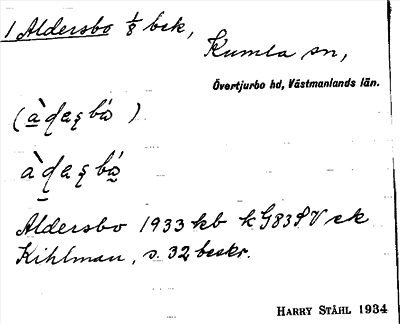 1 Aldersbo 1/8 bek,
Kumla sn,
Övertjurbo hd, Västmanlands län.
Aldersbo 1933 kb k G83SV ek
Kihlman, s. 32 beskr.
HARRY STÅHL 1934